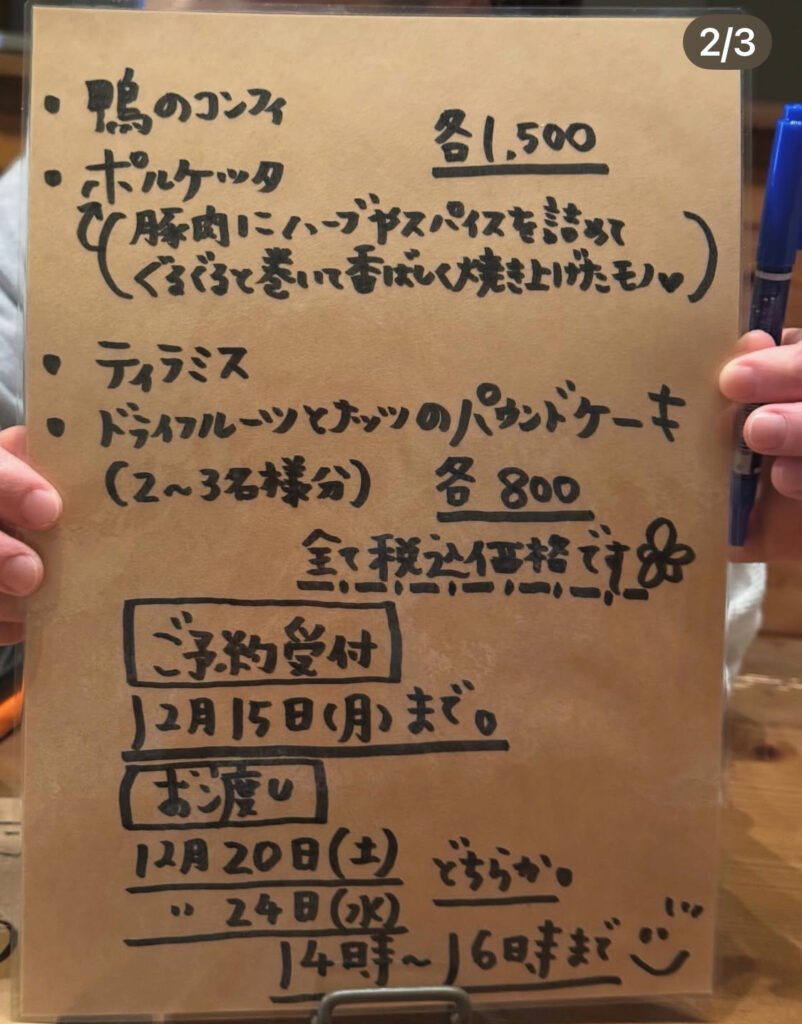 2/3
・鴨のコンフィ
各1,500
・ポルケッタ
(豚肉にハーブやスパイスを詰めて
ぐるぐると巻いて香ばしく焼き上げたモノ♥)
・ティラミス
・ドライフルーツとナッツのパウンドケーキ
(2〜3名様分) 各800
全て税込価格です
ご予約受付
12月15日(月)まで。
お渡し
12月20日(土)
どちらか。
〃 24日(水)
14時〜16時まで